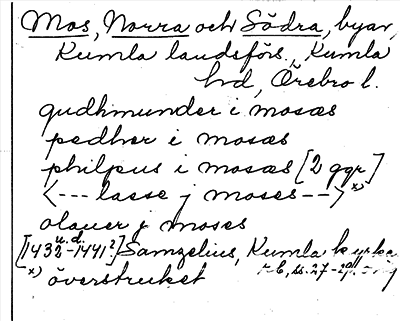 Mos, Norra och Södra, byar,
Kumla landsförs., Kumla
hd, Örebro l.
gudhmunder i mosæs
pedher i mosæs
philpus i mosæs [2 ggr]
<--- lasse j moses --->x)
olauer j moses
[u.d. 1432-1441?] Samzelius, Kumla kyrka
x) överstruket
s. 27-29